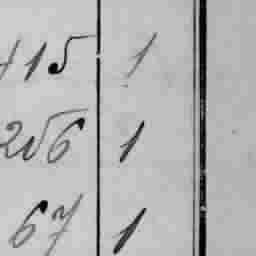 415 1
256 1
67 1